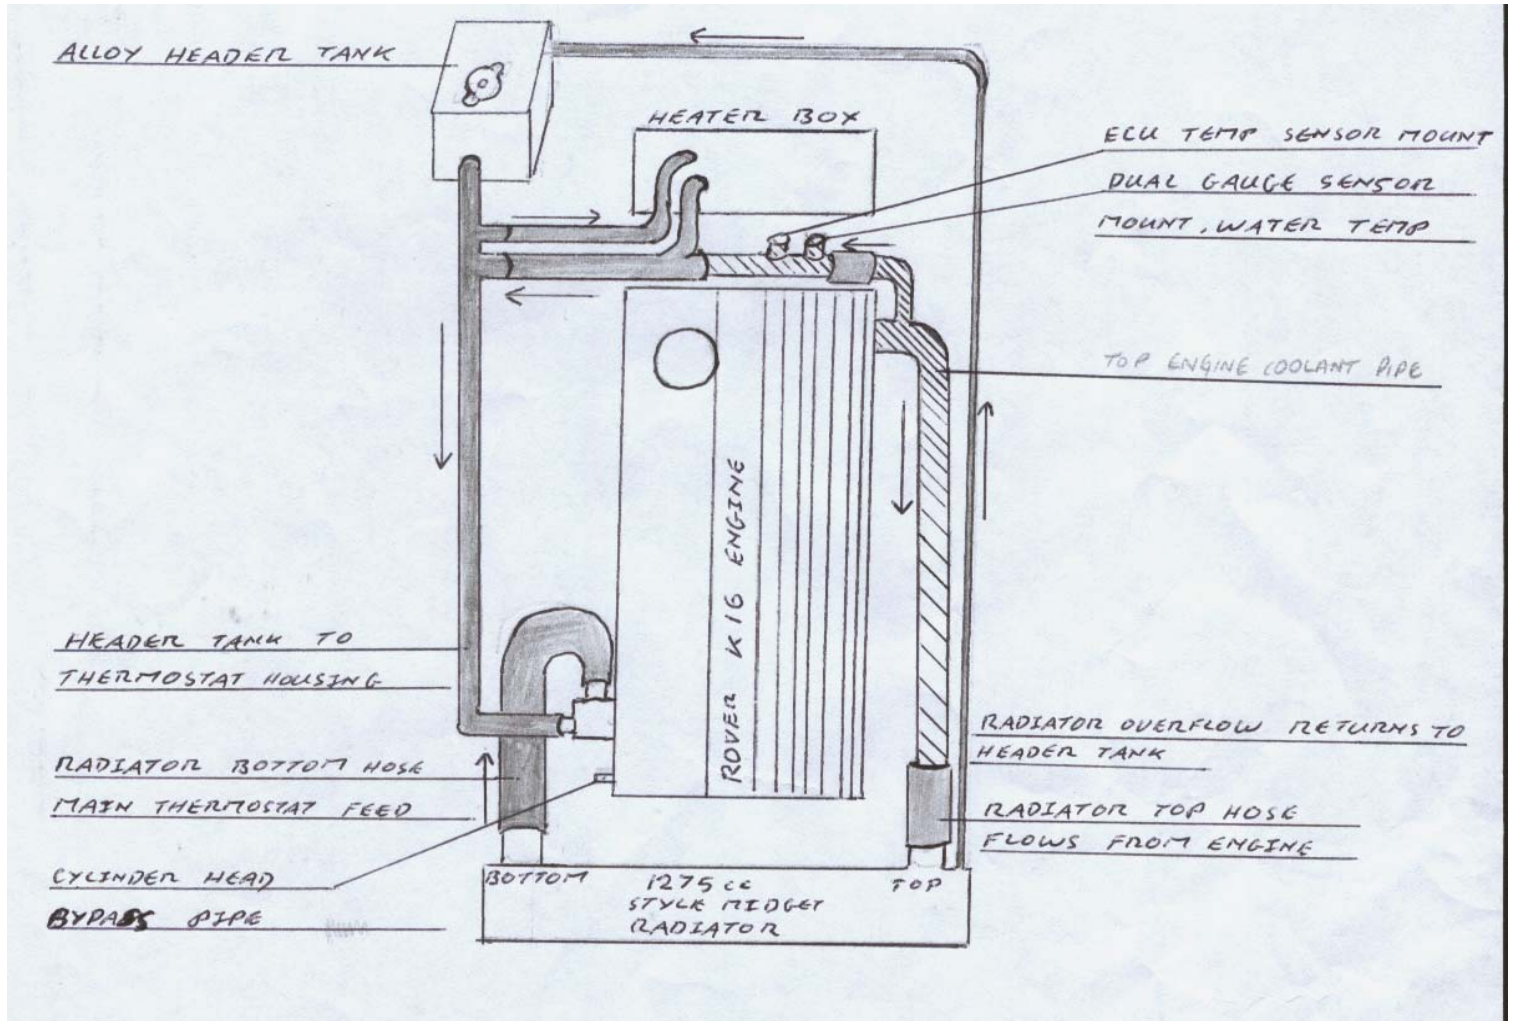 ALLOY HEADER TANK
HEATER BOX
ECU TEMP SENSOR MOUNT
DUAL GAUGE SENSOR
MOUNT. WATER TEMP
TOP ENGINE COOLANT PIPE
ROVER K16 ENGINE
HEADER TANK TO
THERMOSTAT HOUSING
RADIATOR BOTTOM HOSE
MAIN THERMOSTAT FEED
CYLINDER HEAD
BYPASS PIPE
RADIATOR OVERFLOW RETURNS TO
HEADER TANK
RADIATOR TOP HOSE
FLOWS FROM ENGINE
BOTTOM
1275cc
STYLE MIDGET
RADIATOR
TOP